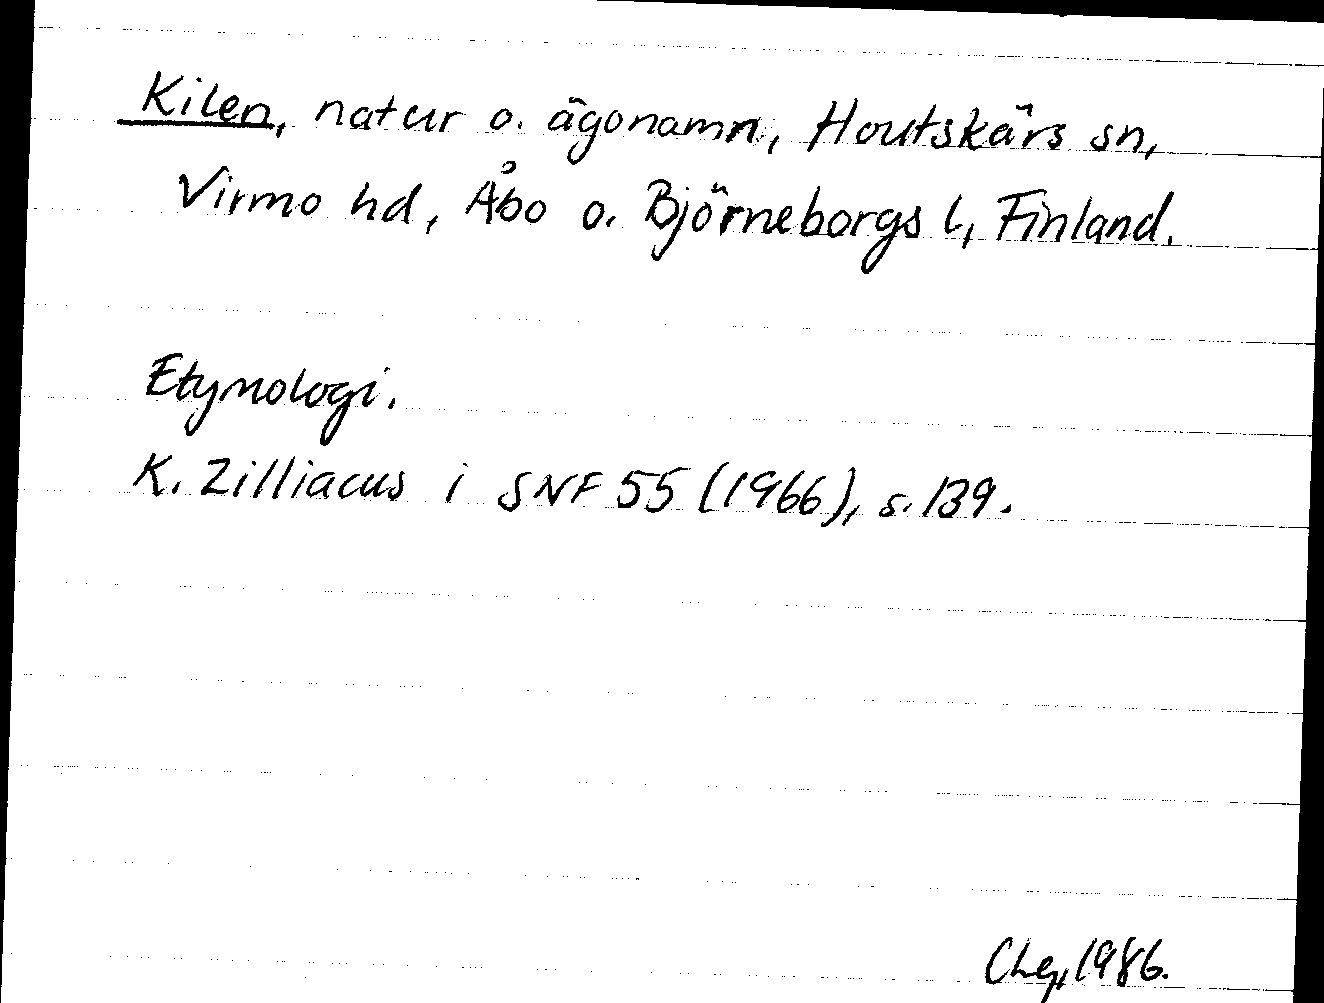 Kilen, natur o. ägonamn, Houtskärs sn,
Virmo hd, Åbo o. Björneborgs l, Finland.
Etymologi.
K. Zilliacus i SNF 55 (1966), s. 139.
1986.